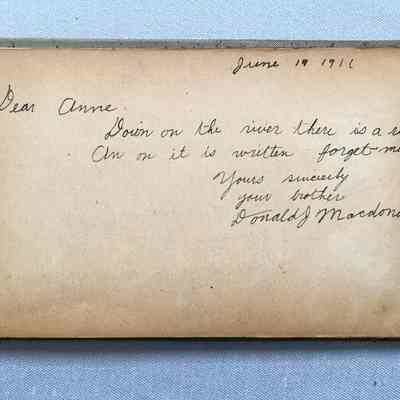 June 19 1911
Dear Anne.
Down on the river there is a
An on it is written forget-me
Yours sincerly
your brother
Donald J Macdon